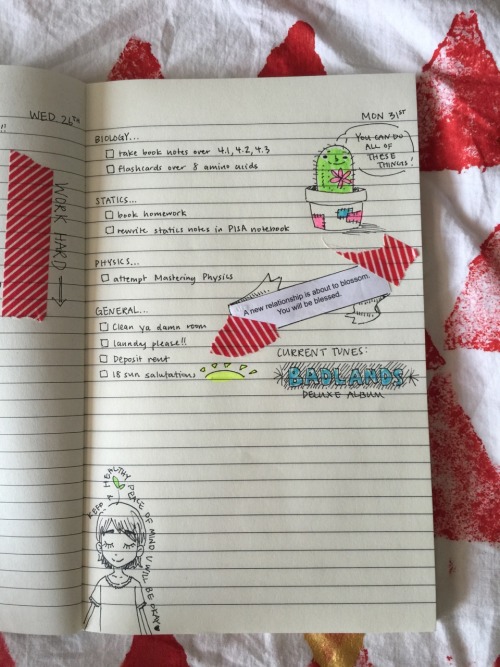 WED. 26TH
!!
WORK HARD
MON 31ST
BIOLOGY...
take book notes over 4.1, 4.2, 4.3
flashcards over 8 amino acids
YOU CAN DO
ALL OF
THESE
THINGS!
STATICS...
book homework
rewrite statics notes in PISA notebook
PHYSICS...
attempt Mastering Physics
A new relationship is about to blossom.
You will be blessed.
GENERAL...
Clean ya damn room
laundry please!!
Deposit rent
18 sun salutations
CURRENT TUNES:
BADLANDS
DELUXE ALBUM
KEEP A HEALTHY PEACE OF MIND U WILL BE OKAY